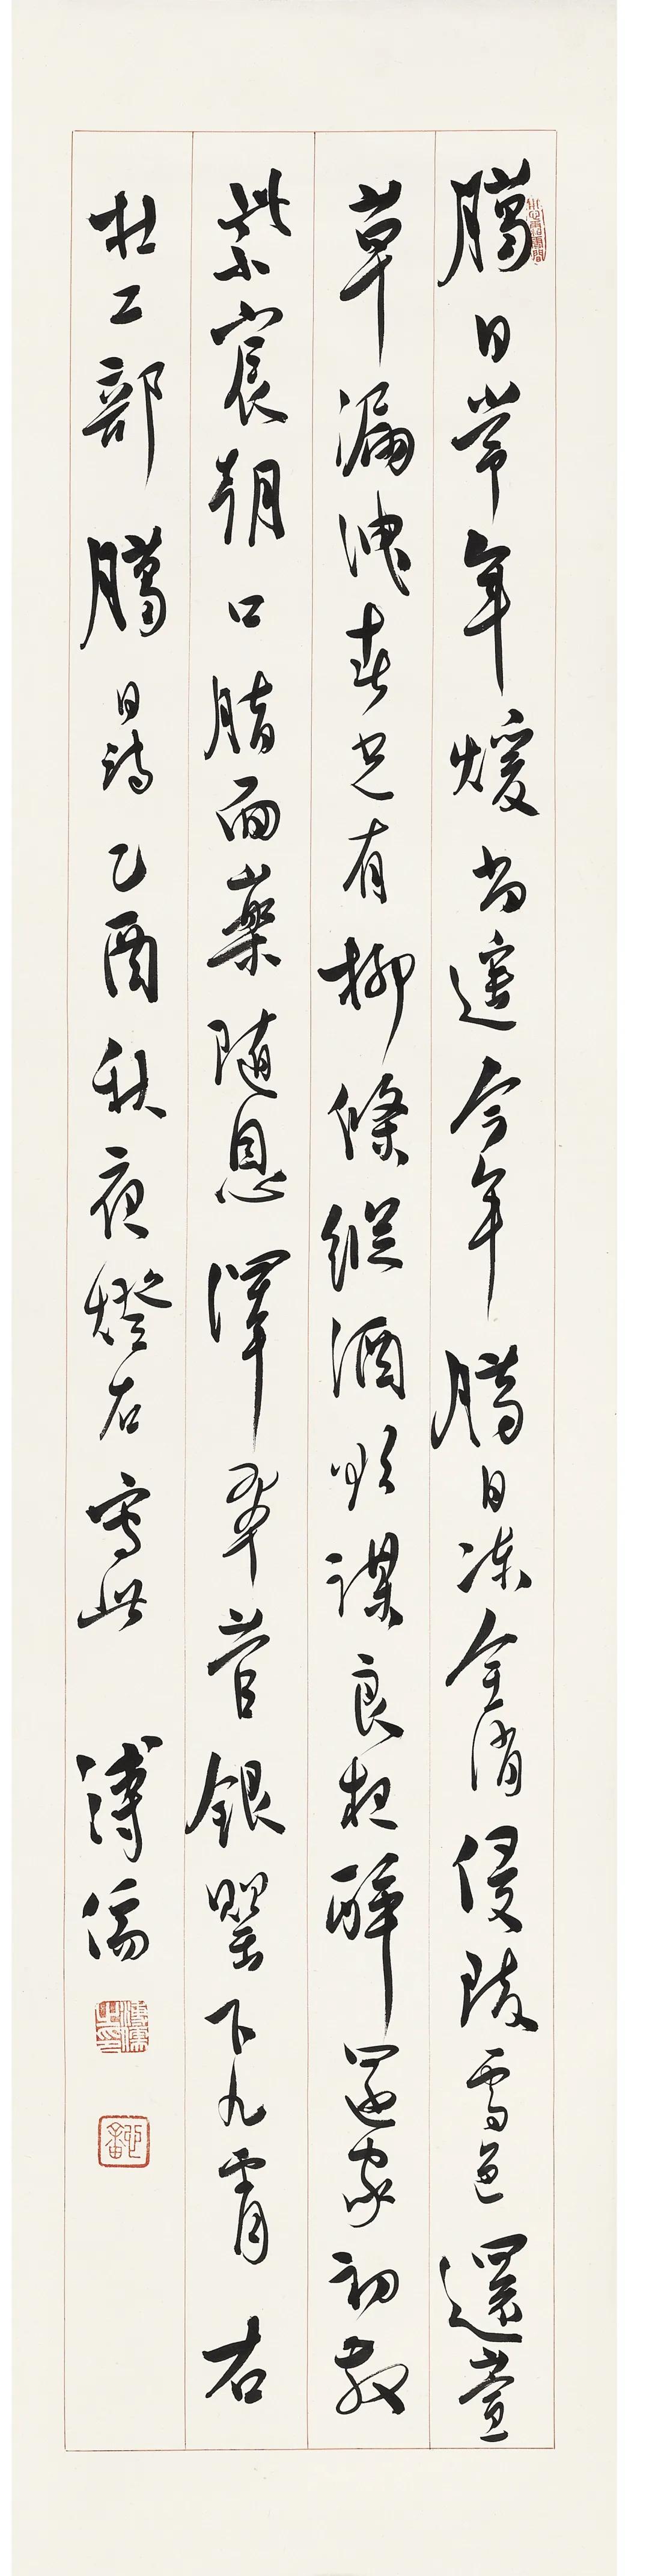 臈日常年煖尚遥今年臈日凍全消侵陵雪色還萱
草漏洩春光有柳條縱酒欲謀良夜醉還家初散
紫宸朝口脂面藥隨恩澤翠管銀罌下九霄右
杜工部臈日詩乙酉秋夜燈右寫此溥儒
溥儒之印